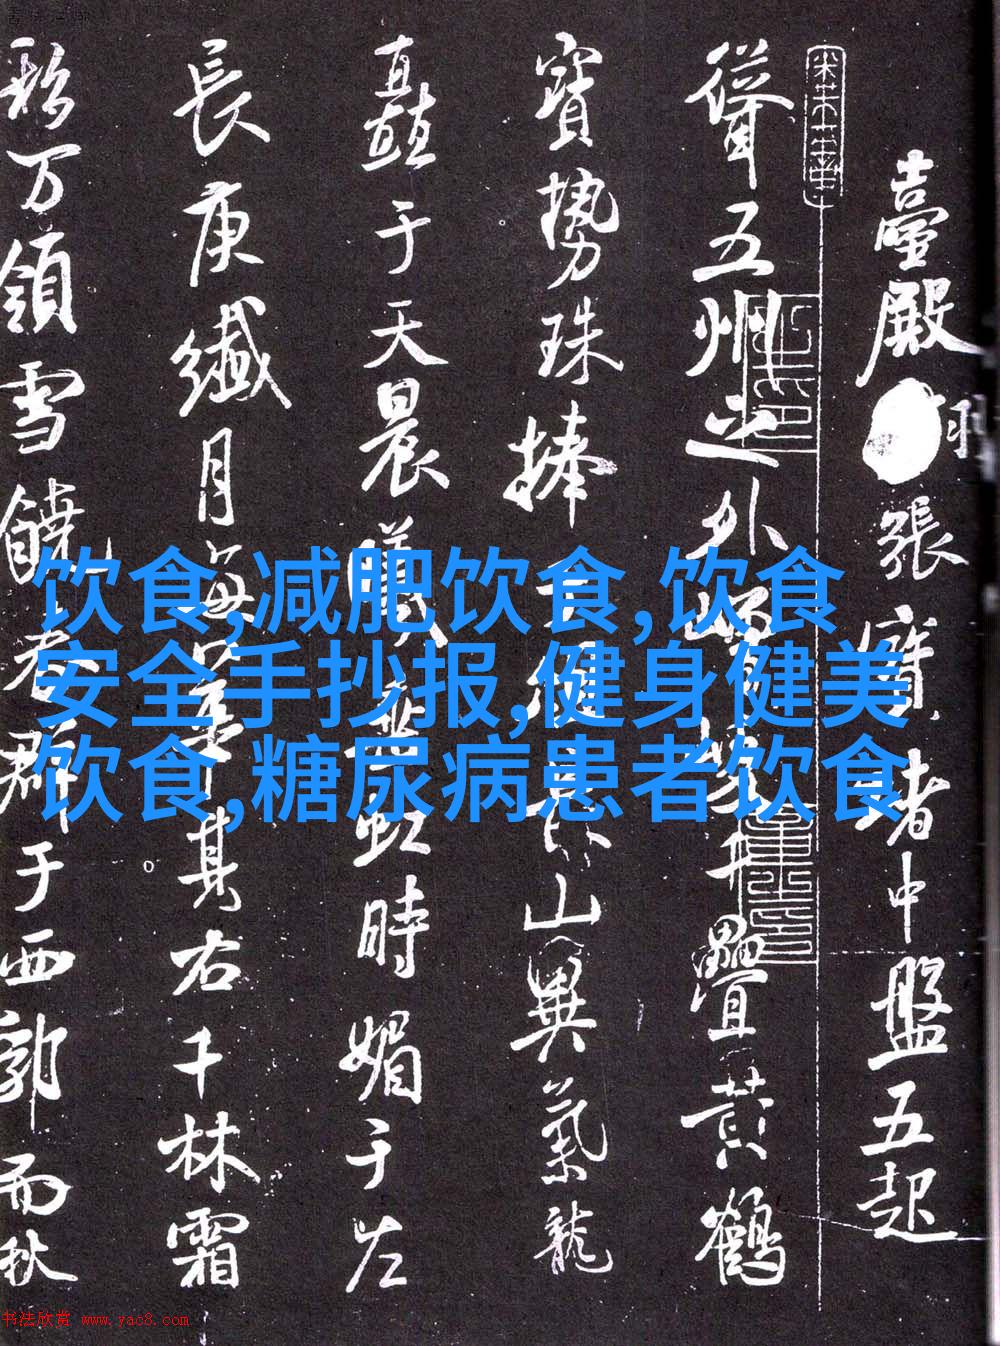 臺殿羽張堵中盤五起
聳五州之外疊黃鶴
寶勢珠捧山異氣龍
矗于天晨曦虹時媚于左
長庚纖月每其右千林霜
万領雪饒春群于西郭而秋
饮食,减肥饮食,饮食
安全手抄报,健身健美
饮食,糖尿病患者饮食
书法欣赏 www.yac8.com